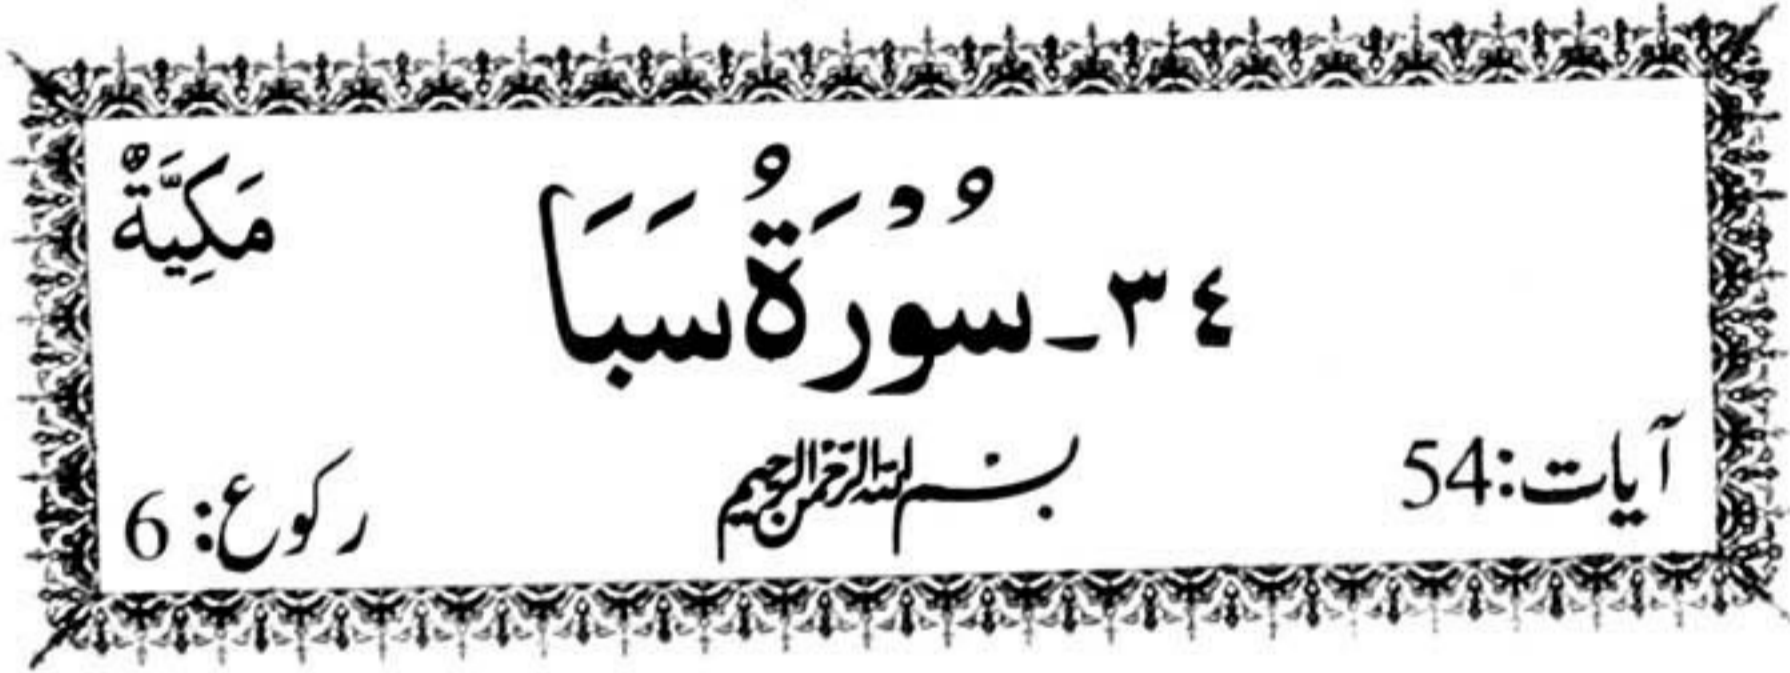 مَكِيَّةٌ
٣٤ـ سُوْرَةُ سَبَا
آیات: 54
بسم الله الرحمن الرحيم
رکوع: 6